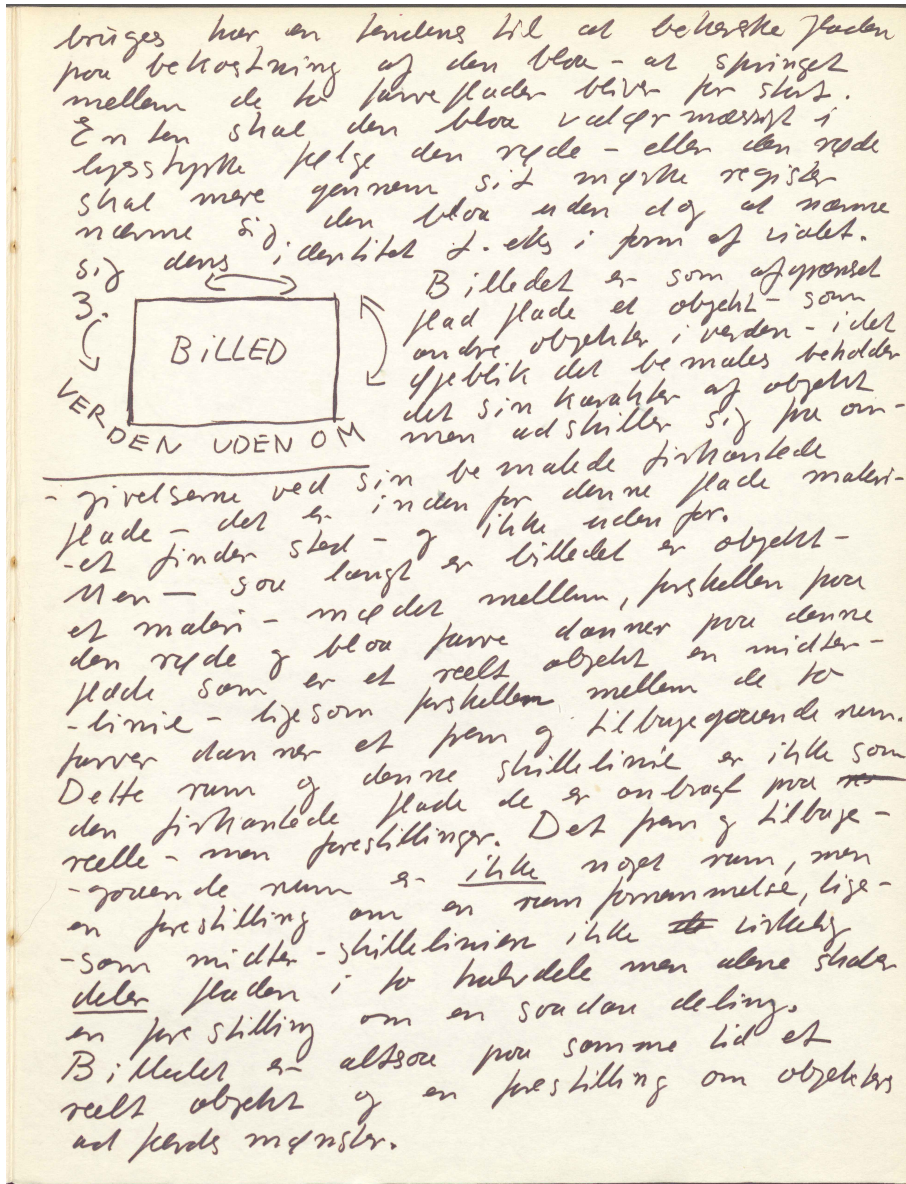 bruges har en tendens til at beherske fladen
paa bekostning af den blaa – at springet
mellem de to farveflader bliver for stort.
Enten skal den blaa valørmæssigt i
lysstyrke følge den røde – eller den røde
skal mere gennem sit mørke register
nærme sig den blaa uden dog at nærme
sig dens identitet f. eks i form af violet.
3.
BILLED
VERDEN UDENOM
Billedet er som afgrænset
flad flade et objekt – som
andre objekter i verden – i det
øjeblik det bemales beholder
det sin karakter af objekt
men udskiller sig fra om-
- givelserne ved sin bemalede firkantede
flade – det er inden for denne flade maleri-
-et finder sted – og ikke uden for.
Men — saa langt er billedet er objekt –
et maleri – mødet mellem, forskellen paa
den røde og blaa farve danner paa denne
flade som er et reelt objekt en midter-
-linie – ligesom forskellen mellem de to
farver danner et frem og tilbagegaaende rum.
Dette rum og denne skillelinie er ikke som
den firkantede flade de er anbragt paa
reelle – men forestillinger. Det frem og tilbage-
-gaaende rum er ikke noget rum, men
en forestilling om en rumfornemmelse, lige-
-som midter-skillelinien ikke virkelig
deler fladen i to halvdele men alene skaber
en forestilling om en saadan deling.
Billedet er altsaa paa samme tid et
reelt objekt og en forestilling om objekters
adfærds mønster.